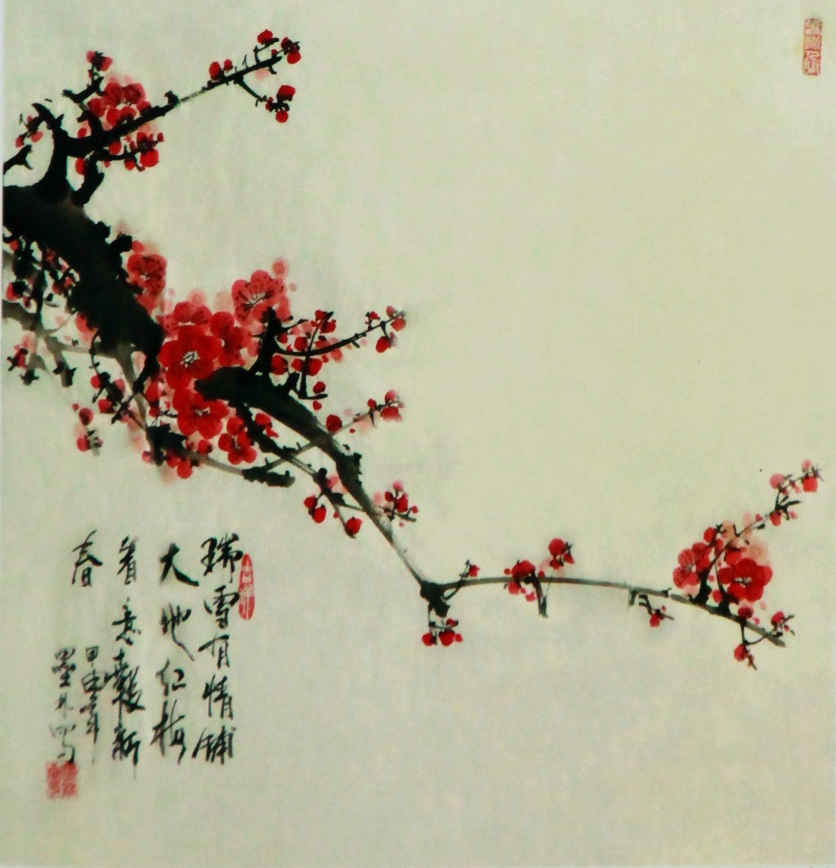 瑞雪有情铺
大地红梅
着意報新
春
甲申年